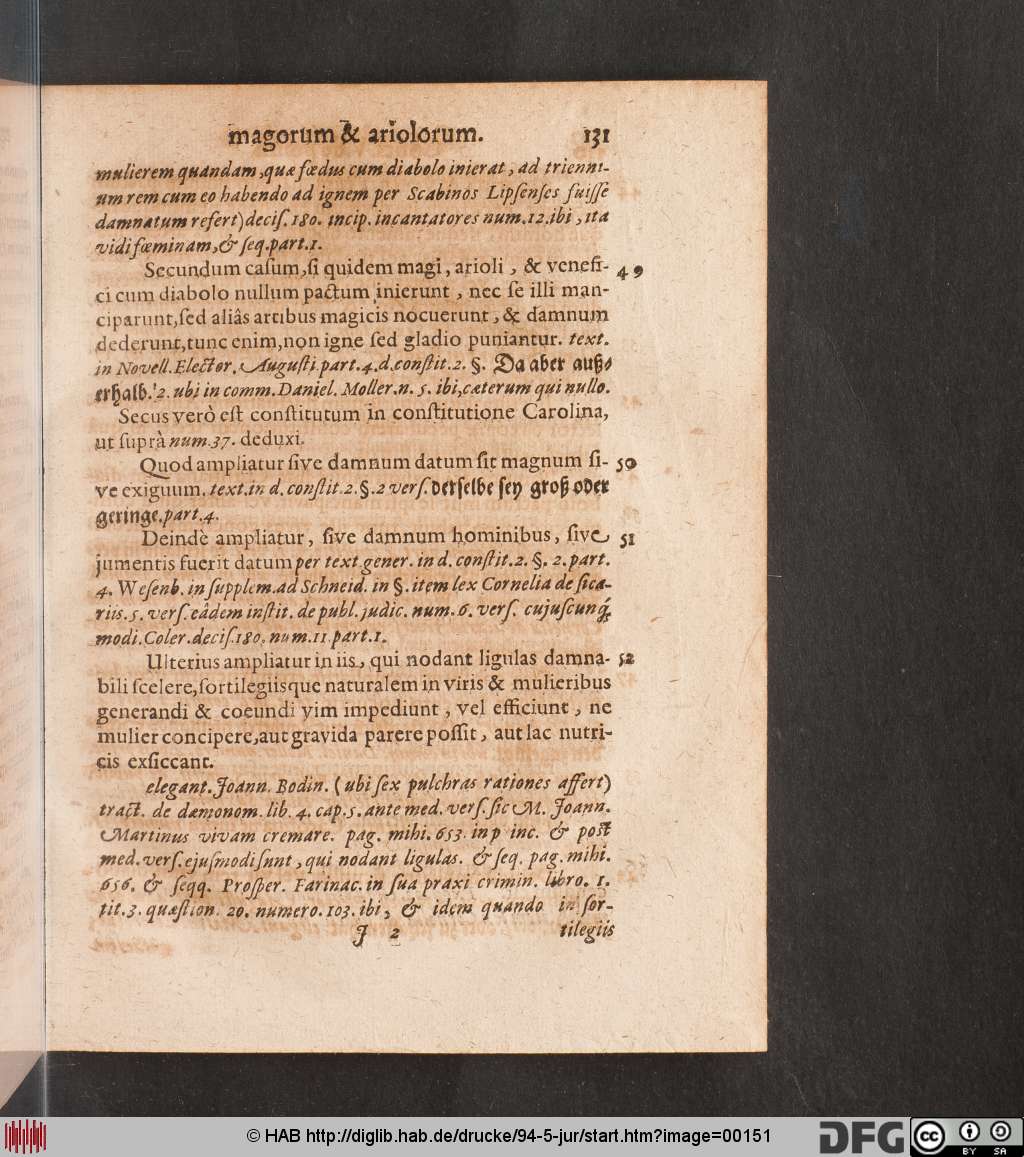 magorum & ariolorum. 131
mulierem quandam, quæ fœdus cum diabolo inierat, ad trienni-
um rem cum eo habendo ad ignem per Scabinos Lipſenſes fuiſſe
damnatum refert) deciſ. 180. incip. incantatores num. 12. ibi, ita
vidi fœminam, & ſeq. part. 1.
Secundum caſum, ſi quidem magi, arioli, & venefi- 49
ci cum diabolo nullum pactum inierunt, nec ſe illi man-
ciparunt, ſed aliâs artibus magicis nocuerunt, & damnum
dederunt, tunc enim, non igne ſed gladio puniantur. text.
in Novell. Elector. Auguſti part. 4. d. conſtit. 2. §. Da aber auſſ⸗
erhalb. 2. ubi in comm. Daniel. Moller. n. 5. ibi, cæterum qui nullo.
Secus verò eſt conſtitutum in conſtitutione Carolina,
ut ſuprà num. 37. deduxi.
Quod ampliatur ſive damnum datum ſit magnum ſi- 50
ve exiguum. text. in d. conſtit. 2. §. 2 verſ. derſelbe ſey groß oder
geringe. part. 4.
Deindè ampliatur, ſive damnum hominibus, ſive 51
jumentis fuerit datum per text gener. in d. conſtit. 2. §. 2. part.
4. Weſenb. in ſupplem. ad Schneid. in §. item lex Cornelia de ſica-
riis. 5. verſ. eâdem inſtit. de publ. judic. num. 6. verſ. cujuſcunq́;
modi. Coler. deciſ. 180. num. 11. part. 1.
Ulterius ampliatur in iis, qui nodant ligulas damna- 52
bili ſcelere, ſortilegiisque naturalem in viris & mulieribus
generandi & coeundi vim impediunt, vel efficiunt, ne
mulier concipere, aut gravida parere poſſit, aut lac nutri-
cis exſiccant.
elegant. Joann. Bodin. (ubi ſex pulchras rationes affert)
tract. de dæmonom. lib. 4. cap. 5. ante med. verſ. ſic M. Joann.
Martinus vivam cremare. pag. mihi. 653. in p inc. & poſt
med. verſ. ejuſmodi ſunt, qui nodant ligulas. & ſeq. pag. mihi.
656. & ſeqq. Proſper. Farinac. in ſua praxi crimin. libro. 1.
tit. 3. quæſtion. 20. numero. 103. ibi, & idem quando in ſor-
J 2 tilegiis
© HAB http://diglib.hab.de/drucke/94-5-jur/start.htm?image=00151
DFG cc BY SA